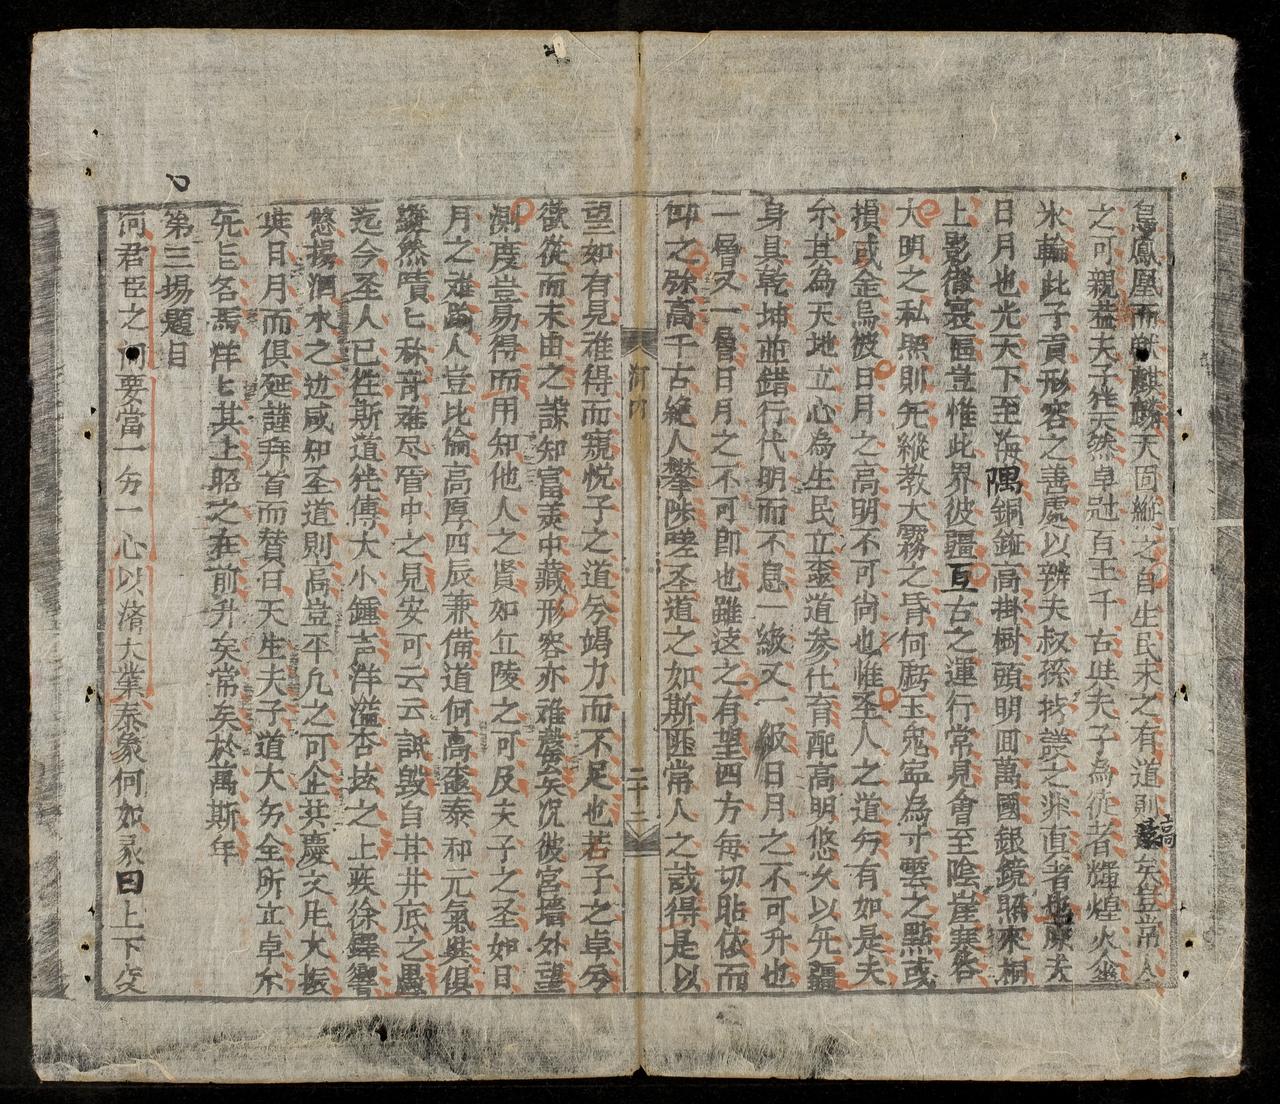 鳧鳳凰而獸麒麟天固縱之自生民未之有道則高矣豈常人
之可親蓋夫子往天然卓冠百王千古哇夫子為從者輝煌火傘
氷輪此子貢形容之善處以辨夫叔孫
日月也光天下至海隅銅鉦高掛樹頭明回萬國銀鏡照來桐
上影徹裏區豈惟此界彼疆亘古之運行常見會至陰崖寒谷
大明之私照則旡縱教大霧之昏何虧玉兔寍為寸雲之點或
損或金烏彼日月之高明不可尙也惟圣人之道兮有如是夫
尒其為天地立心為生民立𡘊道参化育配高明悠久以旡疆
身具乾坤並錯行代明而不息一級又一級日月之不可升也
一層又一層日月之不可卽也雖逺之有望四方每切貼依而
仰之弥高千古絶人攀陟嗟圣道之如斯匪常人之或得是以
海内
二十二
望如有見誰得而窺悅子之道兮竭力而不足也若子之卓兮
欲從而末由之誰知富美中藏形容亦难罄矣况彼宮墻外望
測度豈易得而用知他人之賢如丘陵之可及夫子之圣如日
月之难踰人豈比倫高厚四辰兼備道何高𡘊泰和元氣與俱
喟然賾匕秘音难尽胷中之見安可云云訿毀自井井底之愚
迄今圣人已徃斯道犹傳大小鍾声洋溢杏坛之上疾徐鐸響
悠揚泗水之边咸知圣道則高豈平凡之可企共慶文用大振
與日月而俱延謹拜首而賛曰天生夫子道大兮全所立卓尒
旡㠯名焉洋匕其上昭之在前升矣常矣於萬斯年
第三塲題目
問君臣之间要當一分一心以濟大業泰象何如彖曰上下交